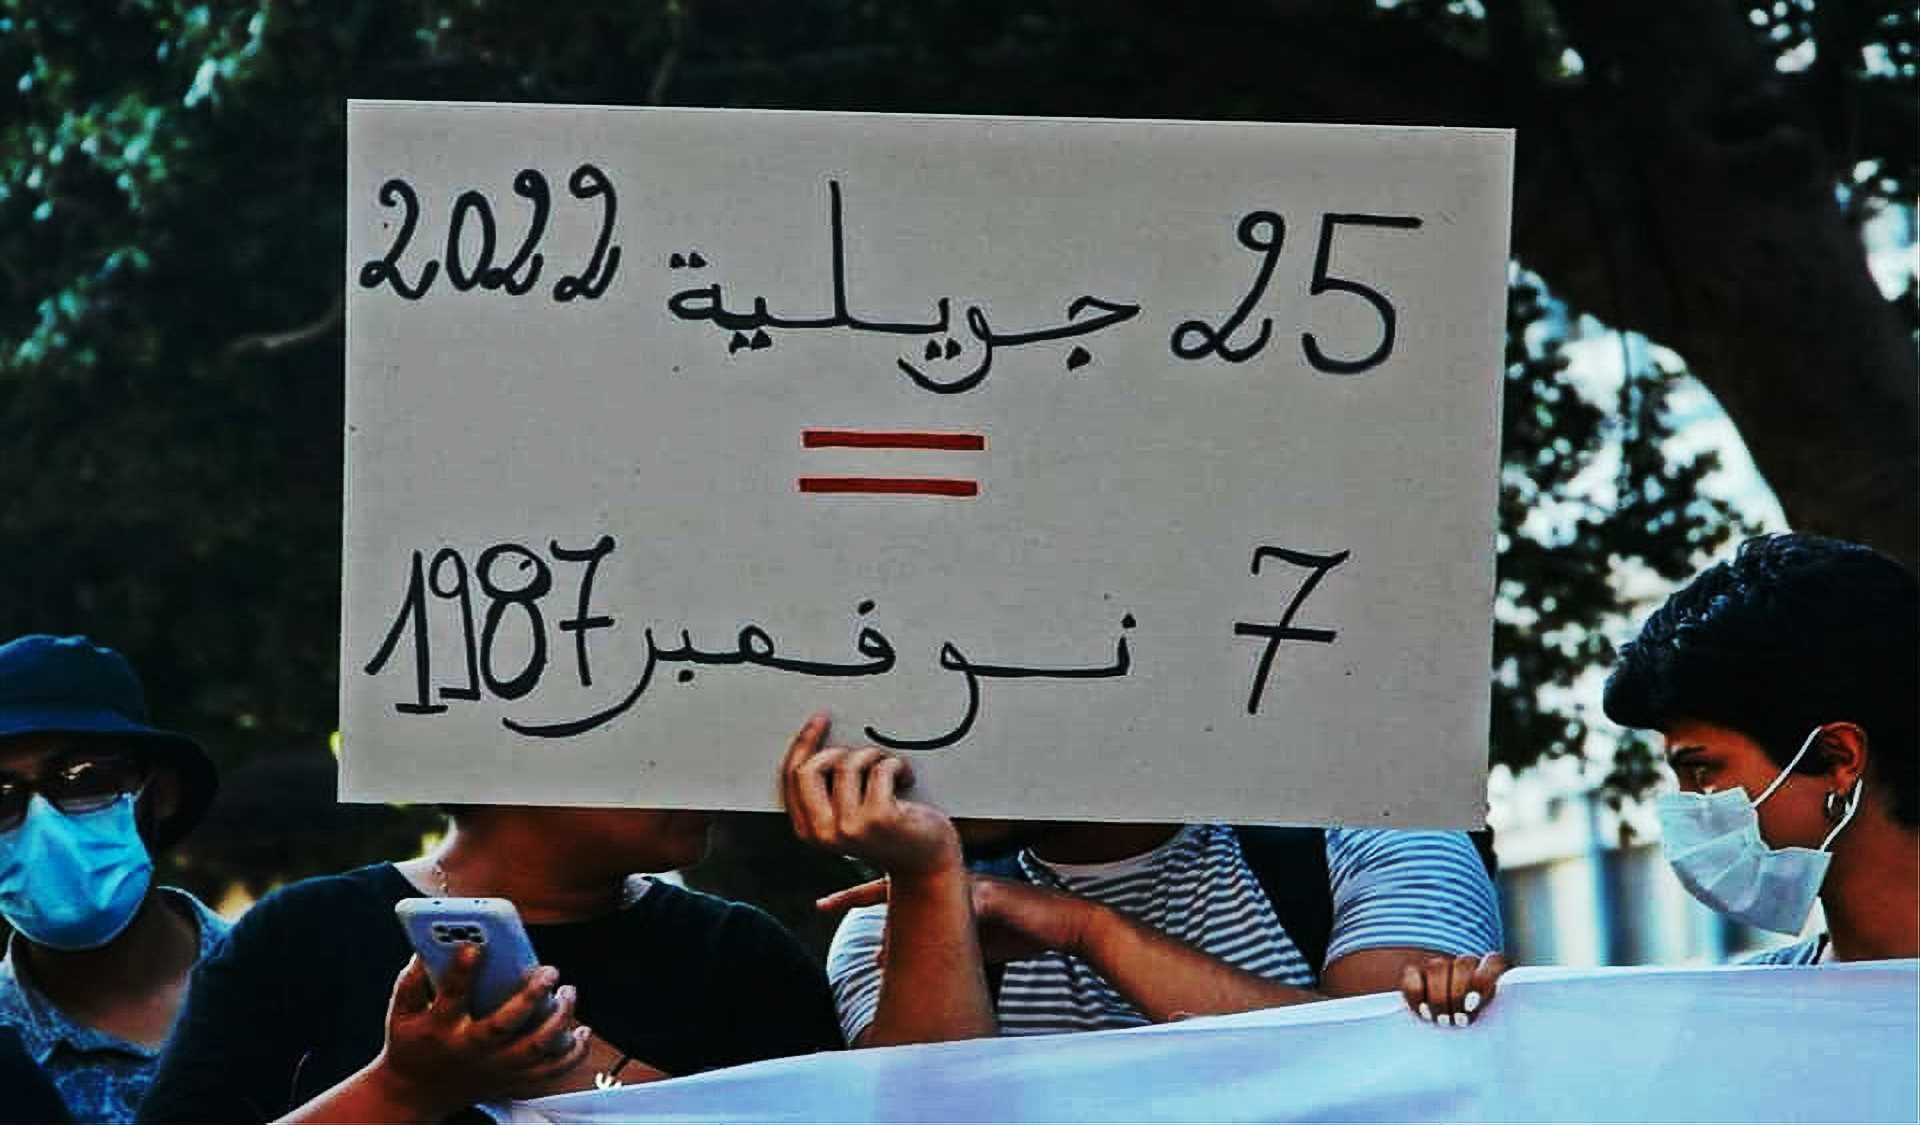 25 جويلية 2022
=
7 نوفمبر 1987